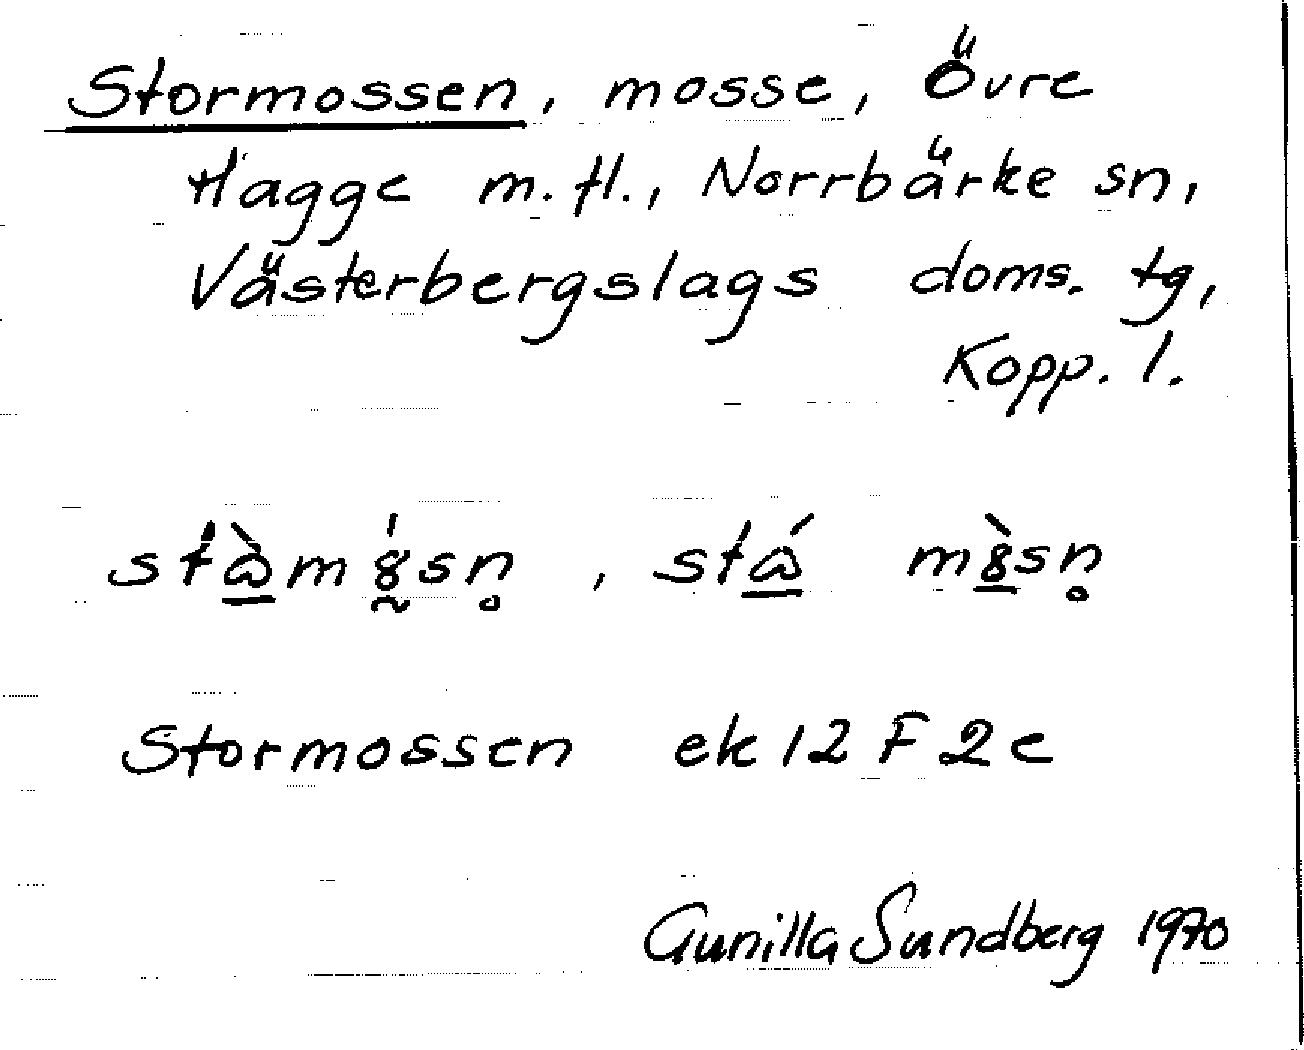 Stormossen, mosse, Övre
Hagge m. fl., Norrbärke sn,
Västerbergslags doms. tg,
Kopp. l.
Stormossen ek 12 F 2e
Gunilla Sundberg 1970